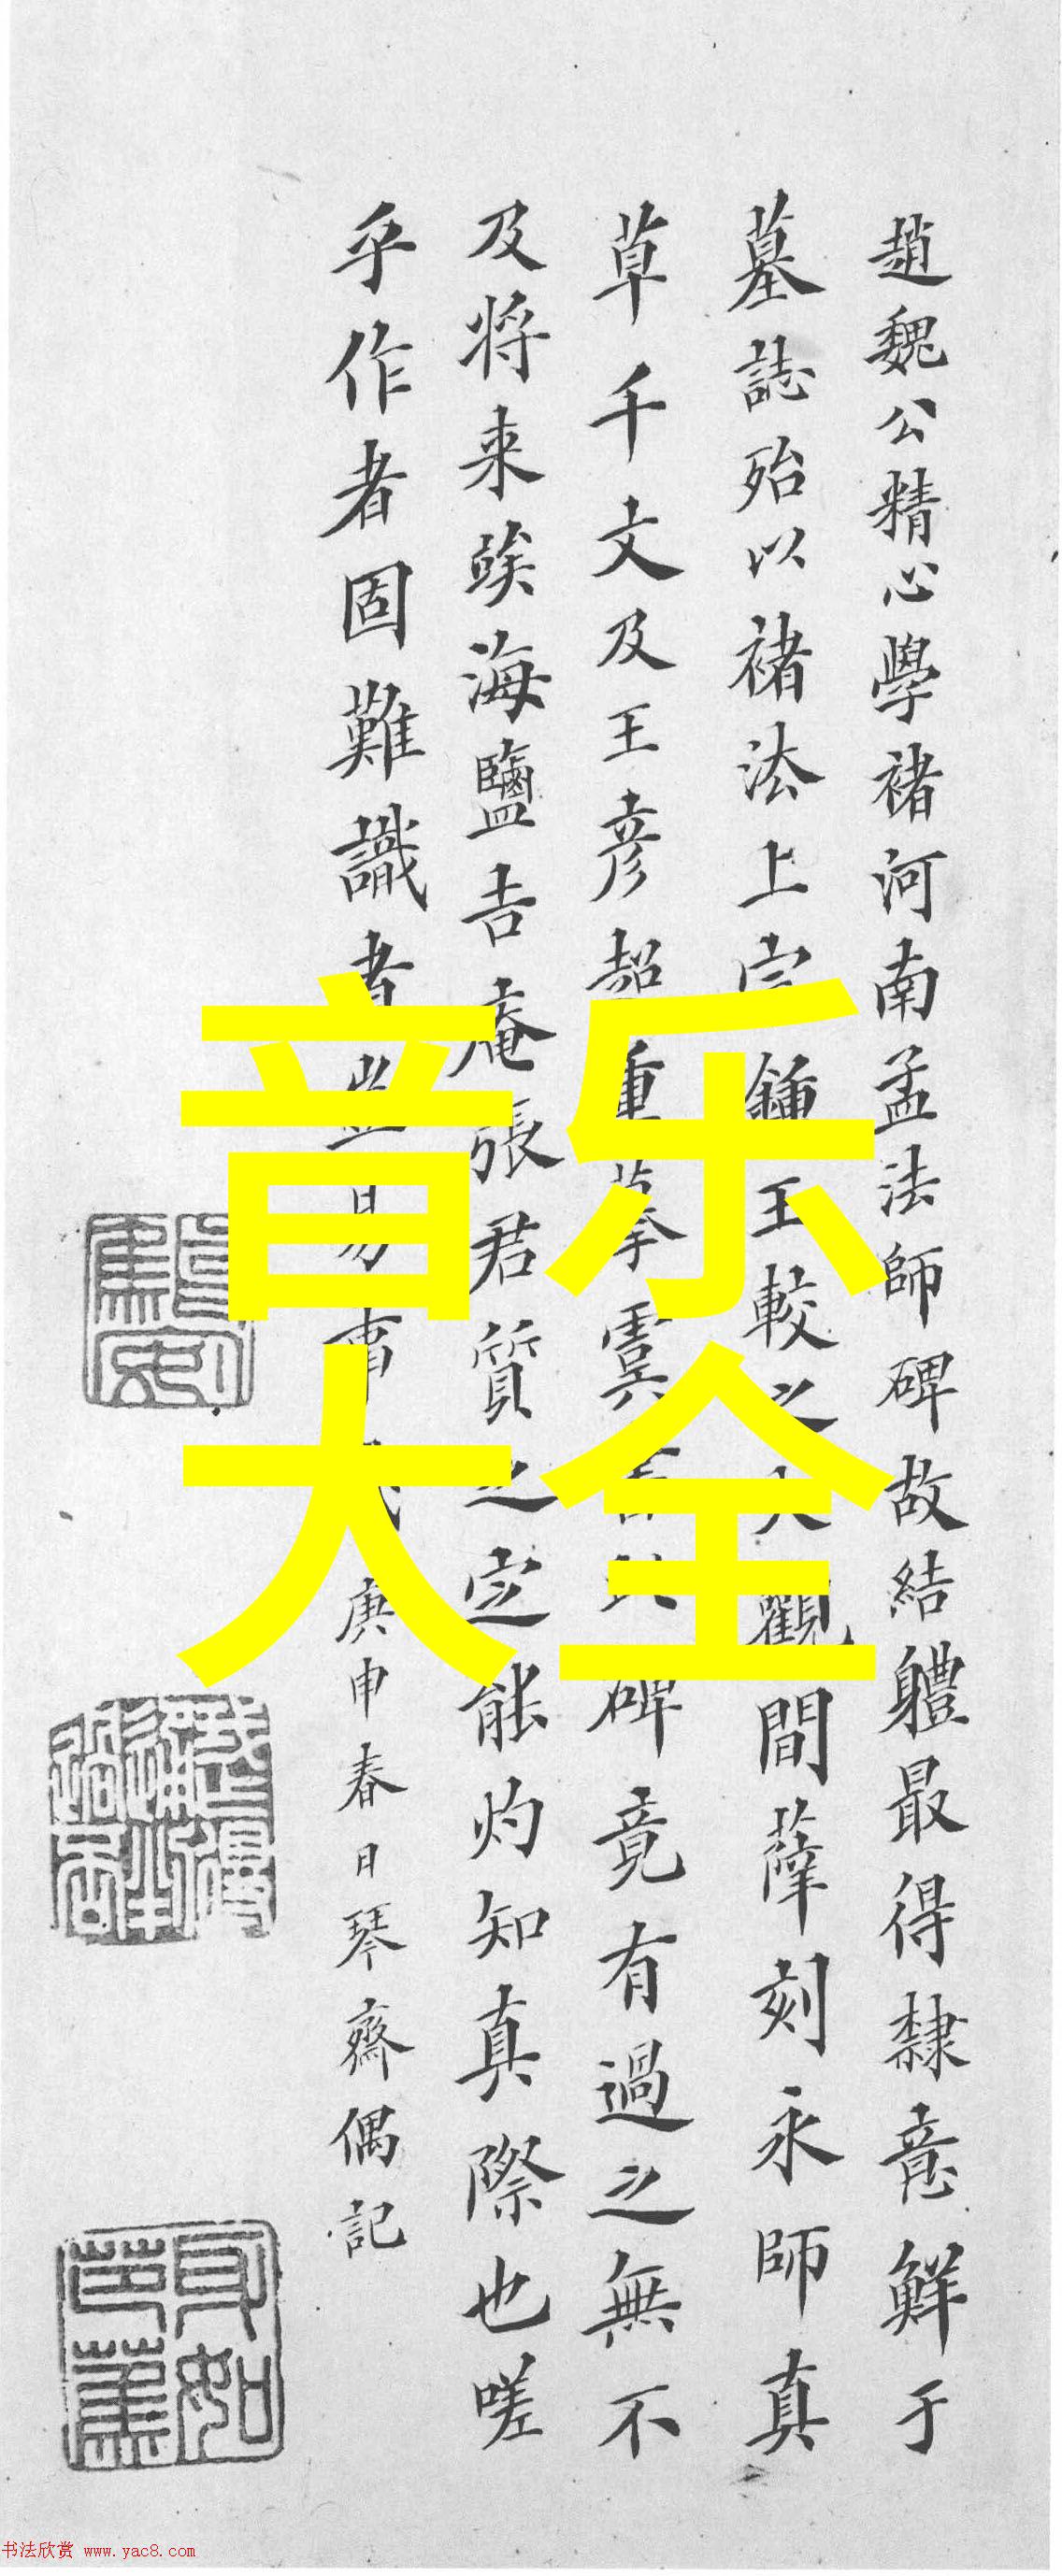 趙魏公精心學褚河南孟法師碑故結軆最得隸意鮮于
墓誌殆以褚法上宗鍾王較之大觀間薛刻永師真
草千文及王彦超重摹虞書碑竟有過之無不
及将来竢海鹽吉庵張君質之定能灼知真際也嗟
乎作者固難識者豈易事庚申春日琴齋偶記
音乐
大全
书法欣赏 www.yac8.com